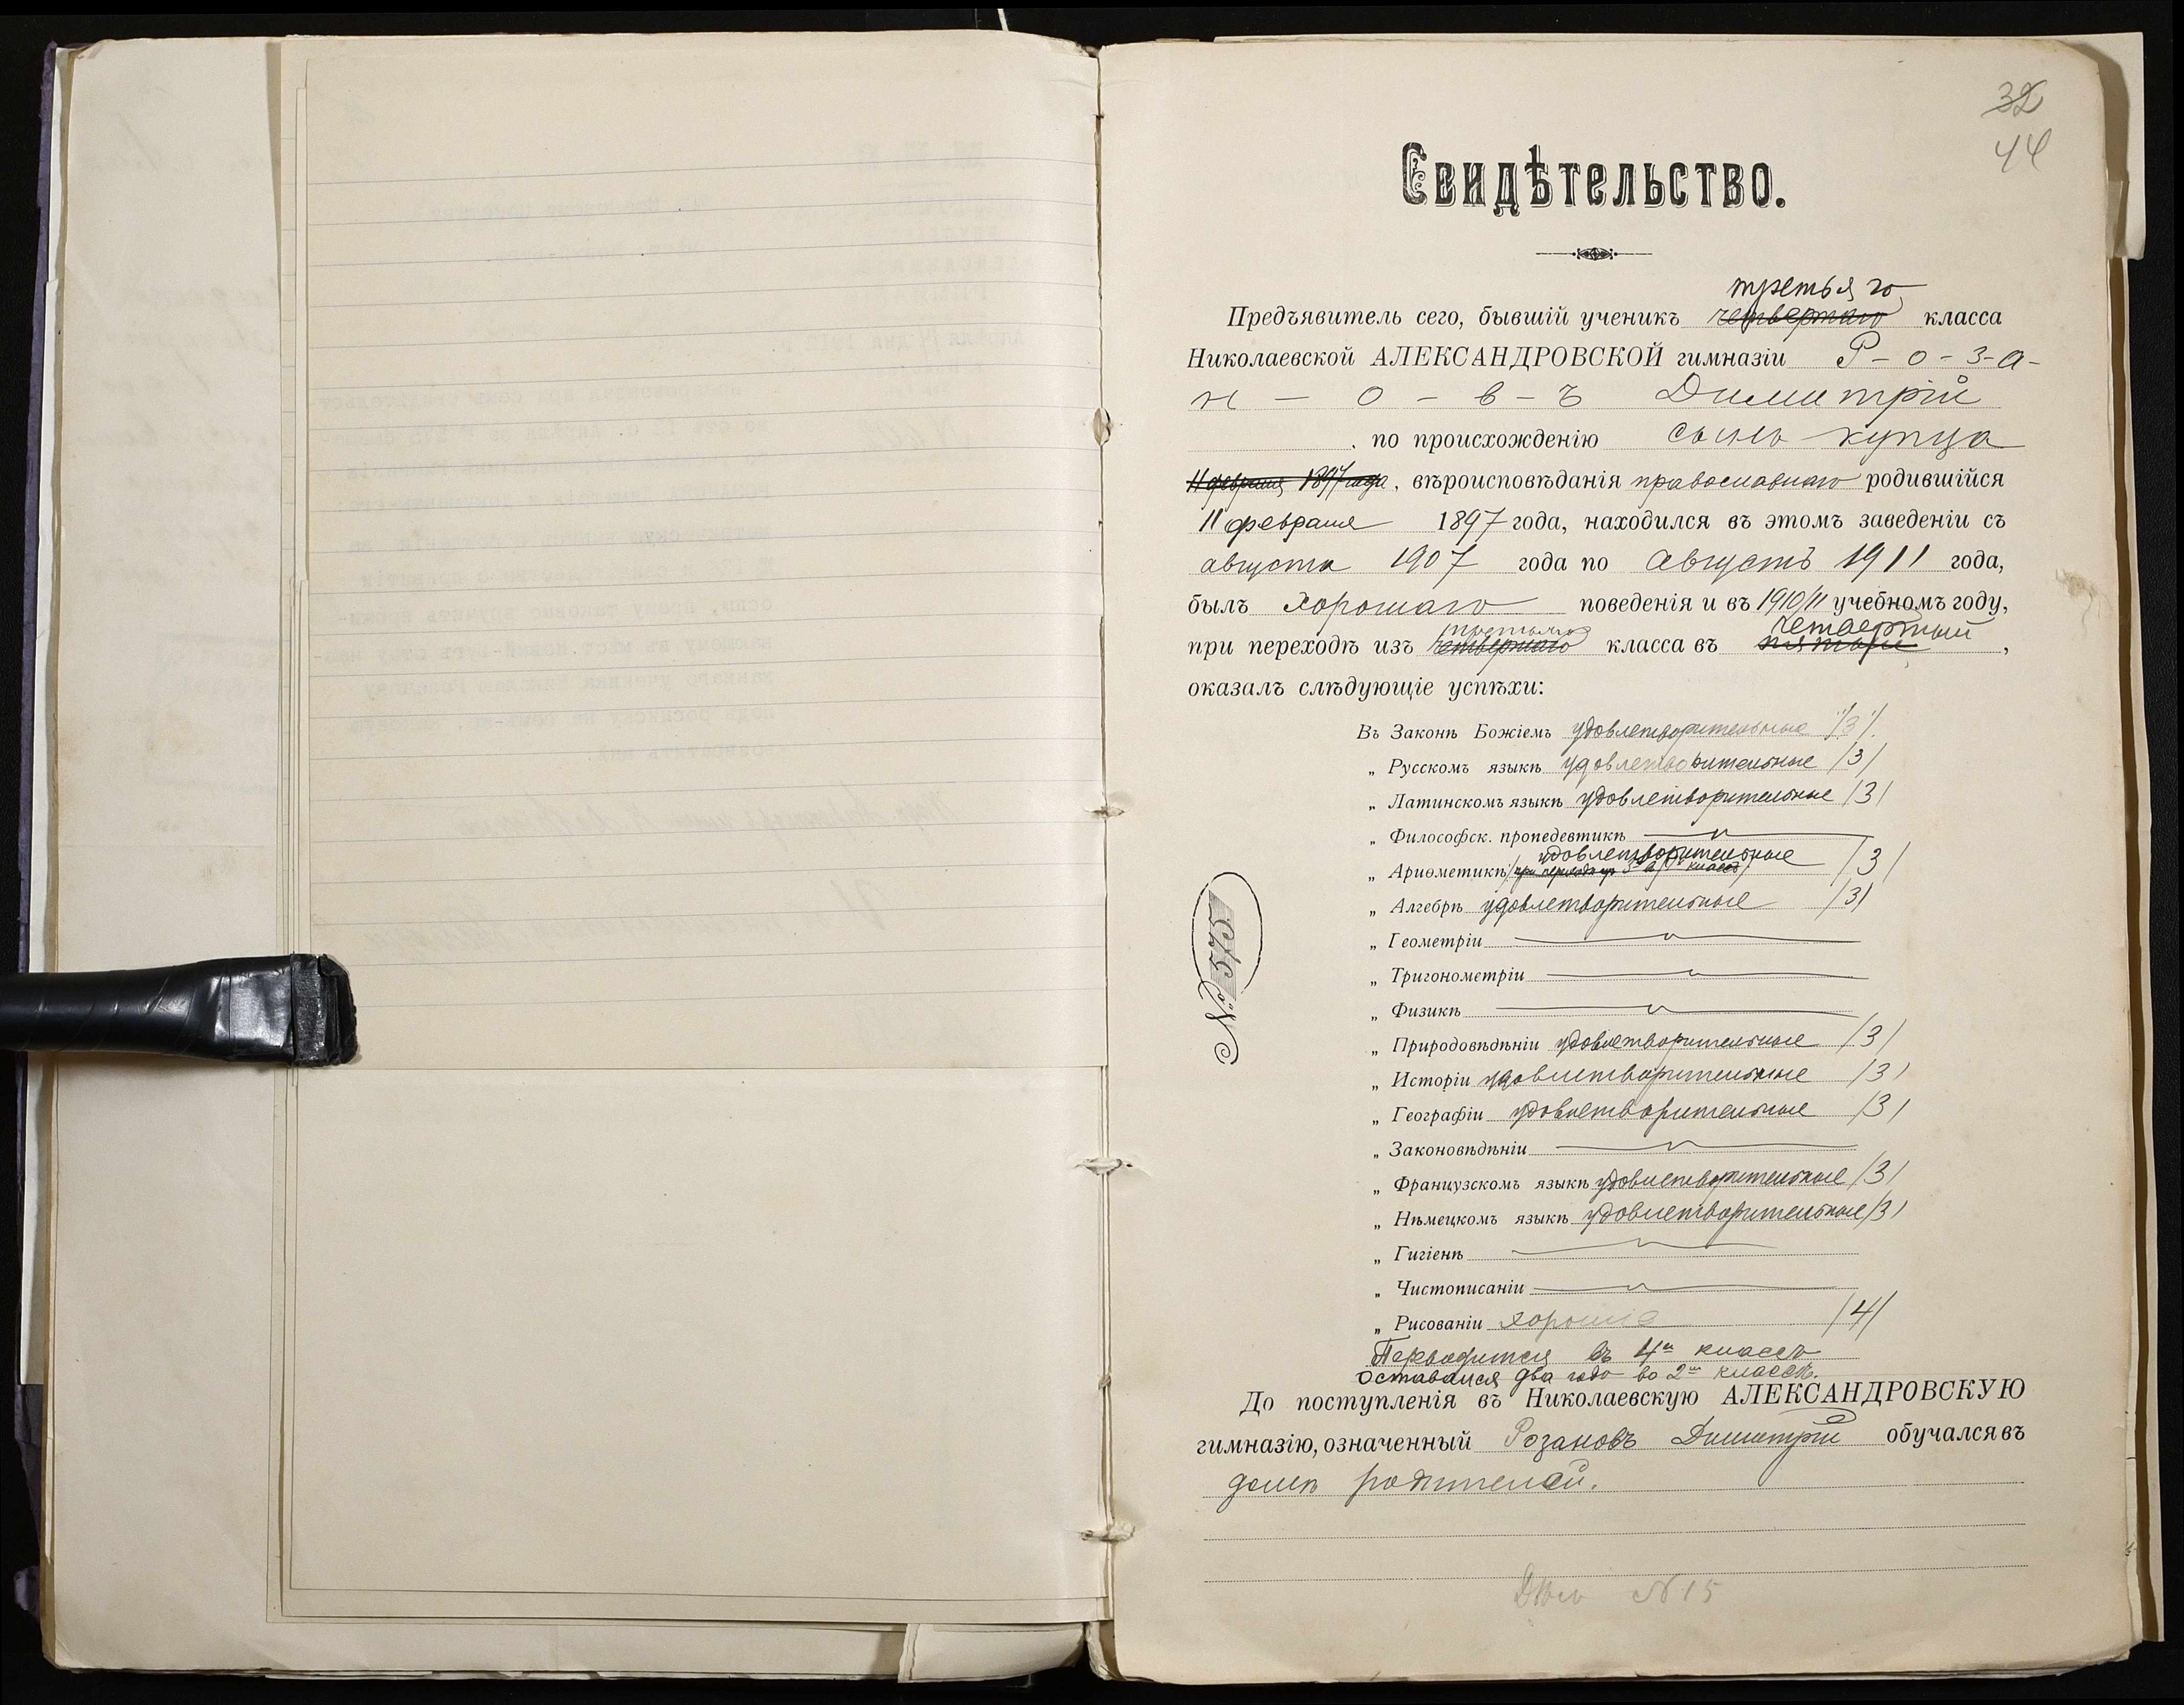 32
44
Свидѣтельство.
третьяго
Предъявитель сего, бывшій ученикъ четвертаго класса
Николаевской АЛЕКСАНДРОВСКОЙ гимназіи Р-о-з-а-
н - о - в - ъ Димитрій
по происхожденію сынъ купца
11 февраля 1897 года, вѣроисповѣданія православнаго родившійся
11 февраля 1897 года, находился въ этомъ заведеніи съ
августа 1907 года по Августъ 1911 года,
былъ хорошаго поведенія и въ 1910/11 учебномъ году,
третьяго четвертый
при переходѣ изъ четвертаго класса въ пятый,
оказалъ слѣдующіе успѣхи:
Въ Законѣ Божіемъ удовлетворительные /3/.
„ Русскомъ языкѣ удовлетворительные /3/
„ Латинскомъ языкѣ удовлетворительные /3/
„ Философск. пропедевтикѣ —
удовлетворительные
„ Ариѳметикѣ /при переходѣ изъ 3 въ 4 классъ/ /3/
„ Алгебрѣ удовлетворительные /3/
„ Геометріи —
„ Тригонометріи —
„ Физикѣ —
„ Природовѣдѣніи удовлетворительные /3/
„ Исторіи удовлетворительные /3/
„ Географіи удовлетворительные /3/
„ Законовѣдѣніи —
„ Французскомъ языкѣ удовлетворительные /3/
„ Нѣмецкомъ языкѣ удовлетворительные /3/
„ Гигіенѣ —
„ Чистописаніи —
„ Рисованіи хорошіе /4/
Переводится въ 4й классъ
оставался два года во 2мъ классѣ.
До поступленія въ Николаевскую АЛЕКСАНДРОВСКУЮ
гимназію, означенный Розановъ Димитрій обучался въ
домѣ родителей.
Дѣло N 15
№ 575